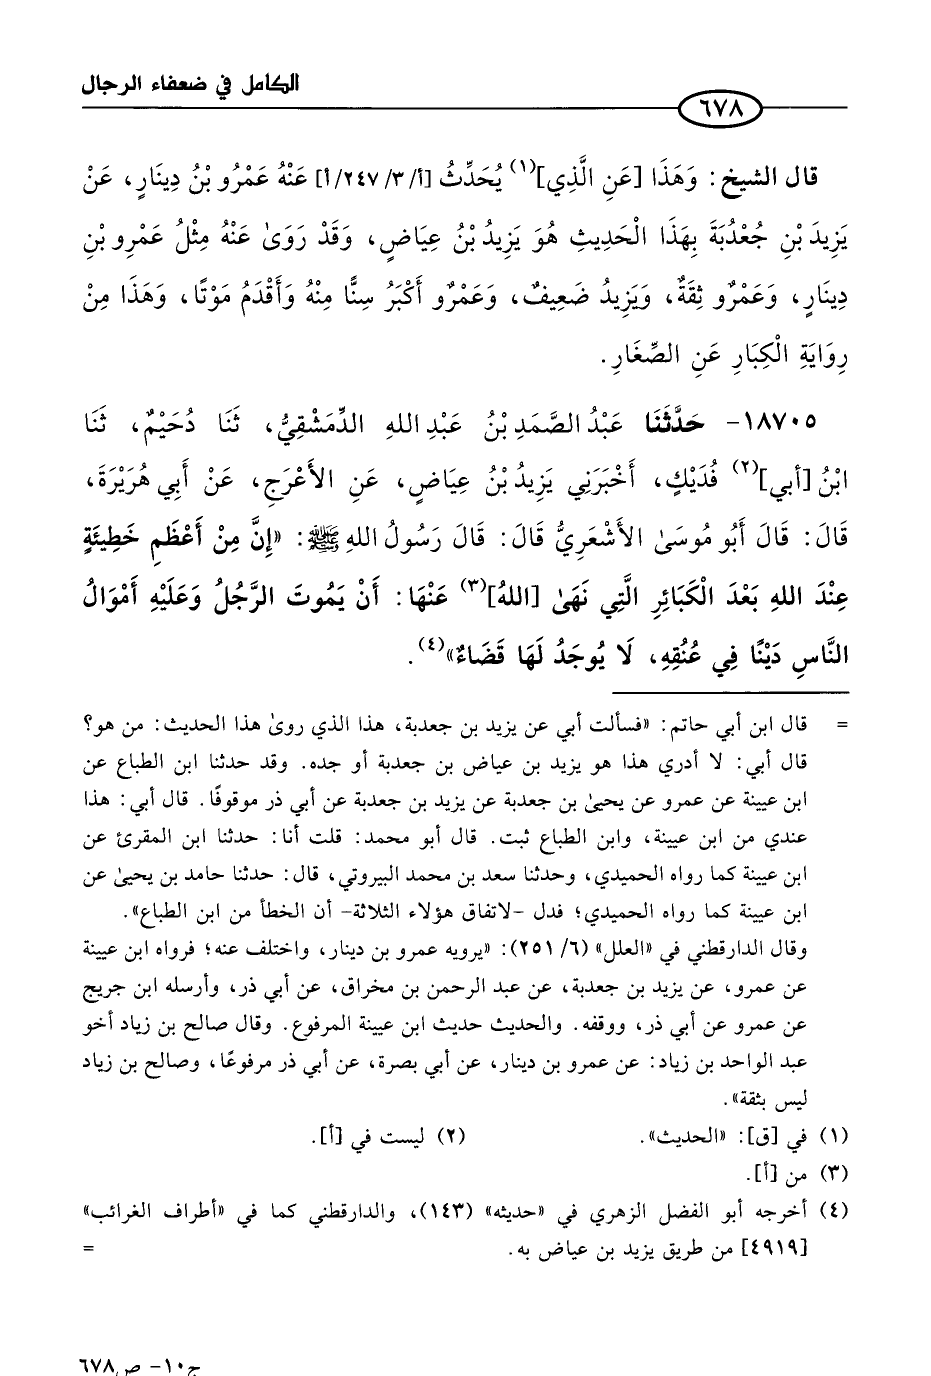 الكامل في ضعفاء الرجال
٦٧٨
قال الشيخ: وَهَذَا [عَنِ الَّذِي](١) يُحَدِّثُ [أ/ ٣/ ٢٤٧/ أ] عَنْهُ عَمْرُو بْنُ دِينَارٍ، عَنْ
يَزِيدَ بْنِ جُعْدُبَةَ بِهَذَا الْحَدِيثِ هُوَ يَزِيدُ بْنُ عِيَاضٍ، وَقَدْ رَوَىٰ عَنْهُ مِثْلُ عَمْرِو بْنِ
دِينَارٍ، وَعَمْرٌو ثِقَةٌ، وَيَزِيدُ ضَعِيفٌ، وَعَمْرٌو أَكْبَرُ سِنًّا مِنْهُ وَأَقْدَمُ مَوْتًا، وَهَذَا مِنْ
رِوَايَةِ الْكِبَارِ عَنِ الصِّغَارِ.
١٨٧٠٥- حَدَّثَنَا عَبْدُ الصَّمَدِ بْنُ عَبْدِ اللهِ الدِّمَشْقِيُّ، ثَنَا دُحَيْمٌ، ثَنَا
ابْنُ [أبي](٢) فُدَيْكٍ، أَخْبَرَنِي يَزِيدُ بْنُ عِيَاضٍ، عَنِ الأَعْرَجِ، عَنْ أَبِي هُرَيْرَةَ،
قَالَ: قَالَ أَبُو مُوسَىٰ الأَشْعَرِيُّ قَالَ: قَالَ رَسُولُ اللهِ ﷺ: «إِنَّ مِنْ أَعْظَمِ خَطِيئَةٍ
عِنْدَ اللهِ بَعْدَ الْكَبَائِرِ الَّتِي نَهَىٰ [اللهُ](٣) عَنْهَا: أَنْ يَمُوتَ الرَّجُلُ وَعَلَيْهِ أَمْوَالُ
النَّاسِ دَيْنًا فِي عُنُقِهِ، لَا يُوجَدُ لَهَا قَضَاءٌ»(٤).
= قال ابن أبي حاتم: «فسألت أبي عن يزيد بن جعدبة، هذا الذي روىٰ هذا الحديث: من هو؟
قال أبي: لا أدري هذا هو يزيد بن عياض بن جعدبة أو جده. وقد حدثنا ابن الطباع عن
ابن عيينة عن عمرو عن يحيىٰ بن جعدبة عن يزيد بن جعدبة عن أبي ذر موقوفًا. قال أبي: هذا
عندي من ابن عيينة، وابن الطباع ثبت. قال أبو محمد: قلت أنا: حدثنا ابن المقرئ عن
ابن عيينة كما رواه الحميدي، وحدثنا سعد بن محمد البيروتي، قال: حدثنا حامد بن يحيىٰ عن
ابن عيينة كما رواه الحميدي؛ فدل -لاتفاق هؤلاء الثلاثة- أن الخطأ من ابن الطباع».
وقال الدارقطني في «العلل» (٦/ ٢٥١): «يرويه عمرو بن دينار، واختلف عنه؛ فرواه ابن عيينة
عن عمرو، عن يزيد بن جعدبة، عن عبد الرحمن بن مخراق، عن أبي ذر، وأرسله ابن جريج
عن عمرو عن أبي ذر، ووقفه. والحديث حديث ابن عيينة المرفوع. وقال صالح بن زياد أخو
عبد الواحد بن زياد: عن عمرو بن دينار، عن أبي بصرة، عن أبي ذر مرفوعًا، وصالح بن زياد
ليس بثقة».
(١) في [ق]: «الحديث». (٢) ليست في [أ].
(٣) من [أ].
(٤) أخرجه أبو الفضل الزهري في «حديثه» (١٤٣)، والدارقطني كما في «أطراف الغرائب»
[٤٩١٩] من طريق يزيد بن عياض به. =
ج١٠- ص٦٧٨